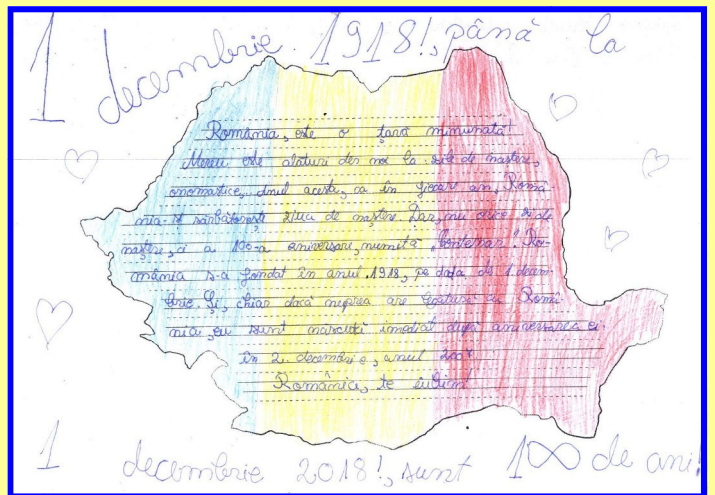 1 decembrie 1918!, până la
România, este o țară minunată!
Mereu este alături des noi la zile de naștere,
onomastice, Anul acesta, ca în fiecare an, Româ-
nia-și sărbătorește ziua de naștere. Dar, nu orice zi de
naștere, ci a 100-a aniversare, numită "Centenar". Ro-
mânia s-a fondat în anul 1918, pe data de 1 decem-
brie. Și, chiar dacă neprea are legătură cu Româ-
nia, eu sunt născută imediat după aniversarea ei
în 2 decembrie, anul
România, te iubim!
1 decembrie 2018!, sunt 100 de ani!